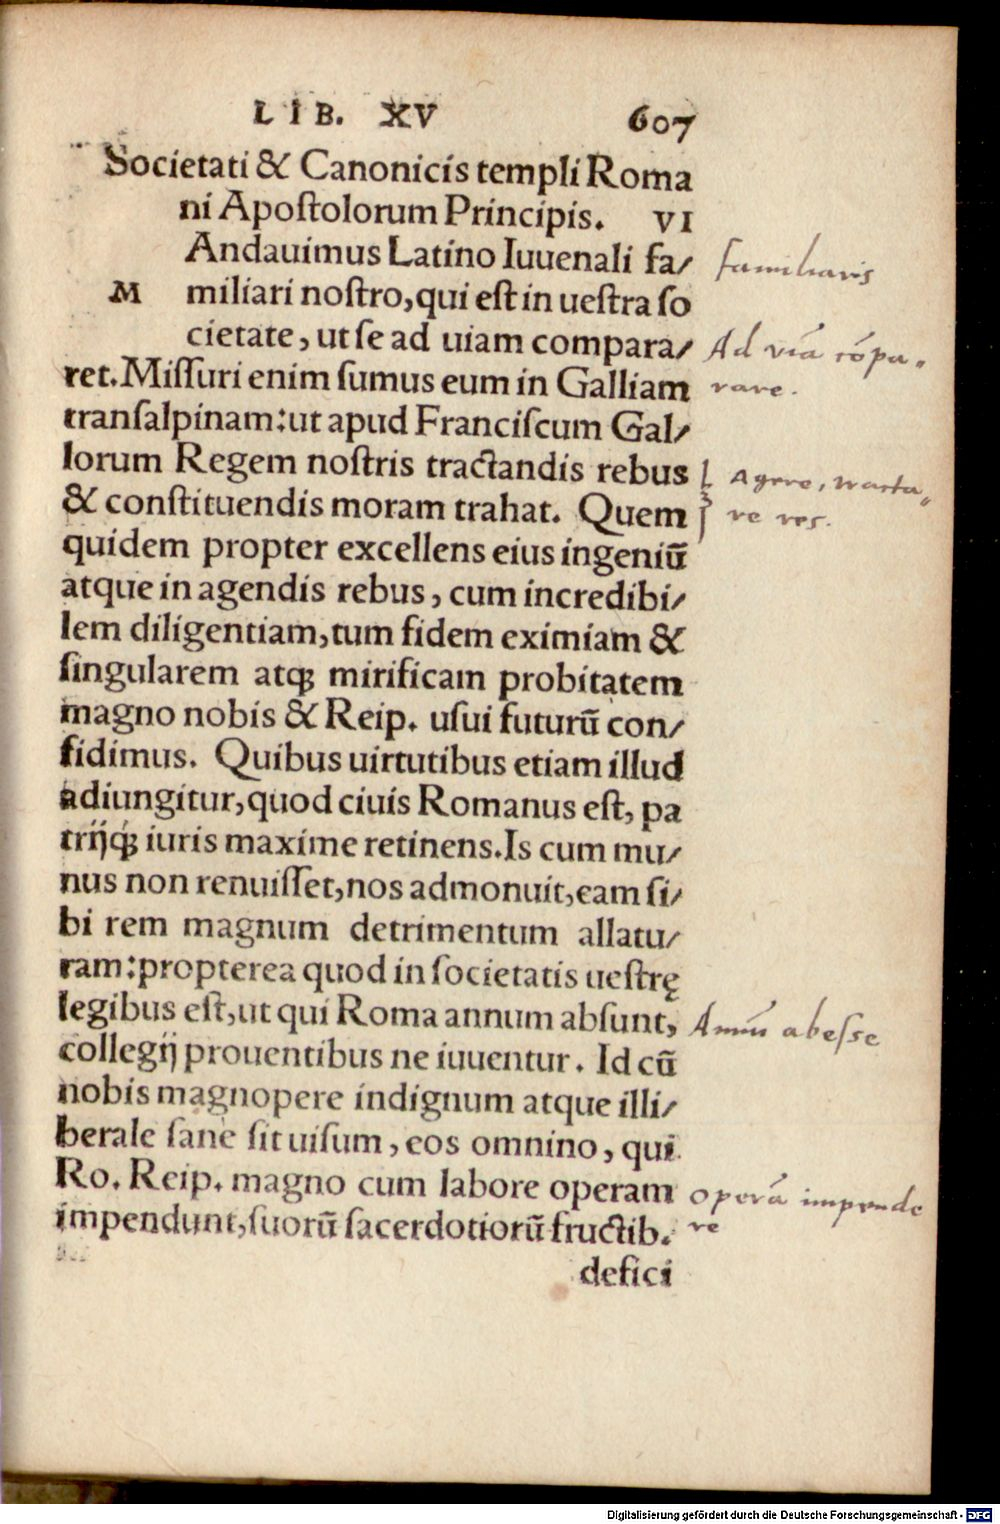 LIB. XV 607
Societati & Canonicis templi Roma
ni Apostolorum Principis. VI
Andauimus Latino Iuuenali fa/
familiaris
M miliari nostro, qui est in uestra so
cietate, ut se ad uiam compara/
Ad viā cōpa-
ret. Missuri enim sumus eum in Galliam
rare.
transalpinam: ut apud Franciscum Gal/
lorum Regem nostris tractandis rebus
Agere, tracta-
& constituendis moram trahat. Quem
re res.
quidem propter excellens eius ingeniū
atque in agendis rebus, cum incredibi/
lem diligentiam, tum fidem eximiam &
singularem atqꝫ mirificam probitatem
magno nobis & Reip. usui futurū con/
fidimus. Quibus uirtutibus etiam illud
adiungitur, quod ciuis Romanus est, pa
trijqꝫ iuris maxime retinens. Is cum mu/
nus non renuisset, nos admonuit, eam si/
bi rem magnum detrimentum allatu/
ram: propterea quod in societatis uestrę
legibus est, ut qui Roma annum absunt,
Annū abesse
collegij prouentibus ne iuuentur. Id cū
nobis magnopere indignum atque illi/
berale sane sit uisum, eos omnino, qui
Ro. Reip. magno cum labore operam
operā impende
impendunt, suorū sacerdotiorū fructib.
re
defici
Digitalisierung gefördert durch die Deutsche Forschungsgemeinschaft - DFG